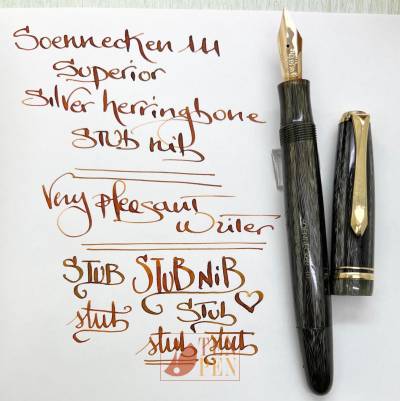 Soennecken 111
Superior
Silver herringbone
STUB nib
Very pleasant
writer
STUB STUB NiB
stub STUB
stub stub
PEN